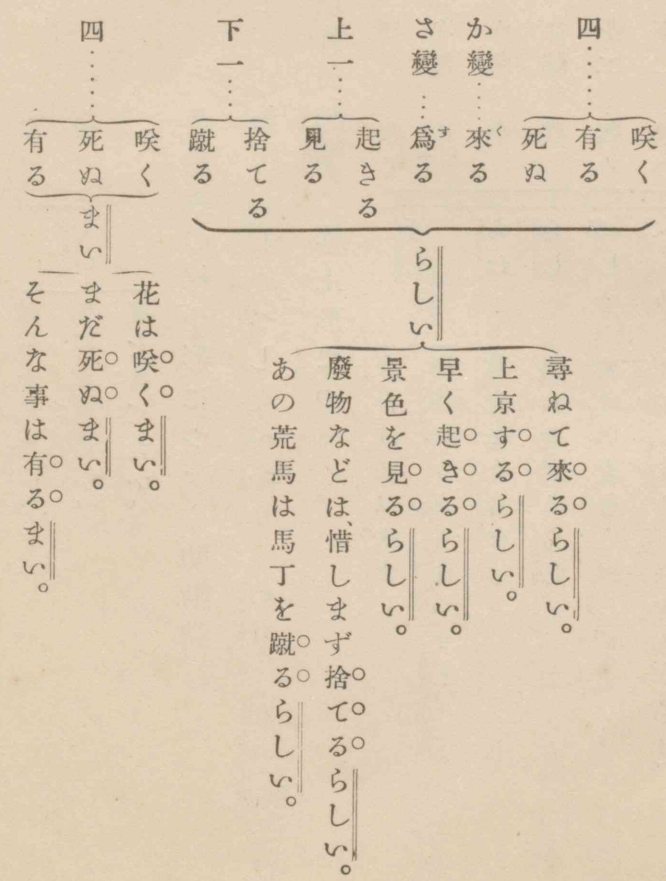 四……咲く
有る
死ぬ
か變……來る
さ變……爲る
上一……起きる
見る
下一……捨てる
蹴る
らしい
尋ねて來るらしい。
上京するらしい。
早く起きるらしい。
景色を見るらしい。
廢物などは、惜しまず捨てるらしい。
あの荒馬は馬丁を蹴るらしい。
四……咲く
死ぬ
有る
まい
花は咲くまい。
まだ死ぬまい。
そんな事は有るまい。